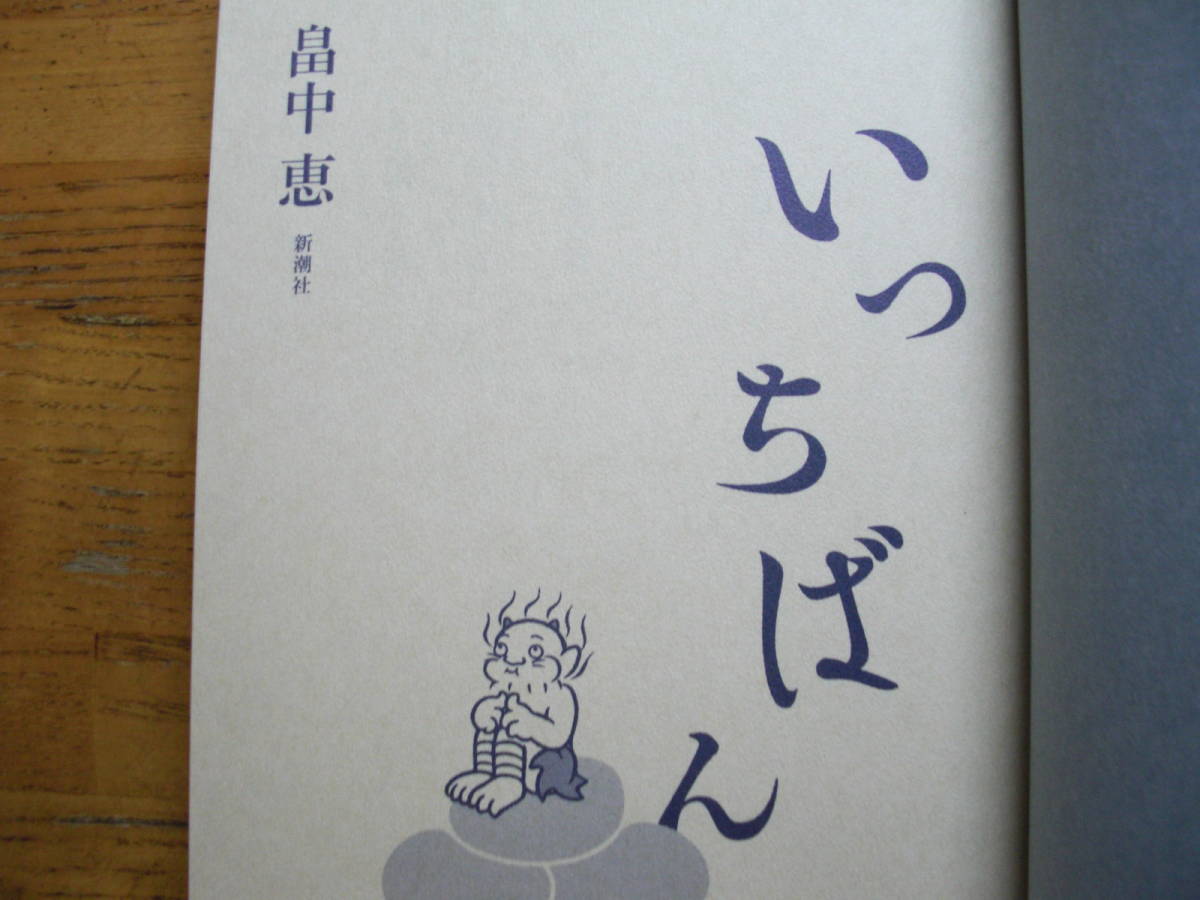 いっちばん
畠中恵
新潮社